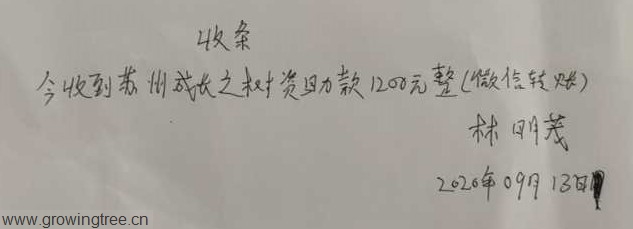 收条
今收到苏州成长之树资助款1200元整(微信转账)
林明茂
2020年09月13日
www.growingtree.cn